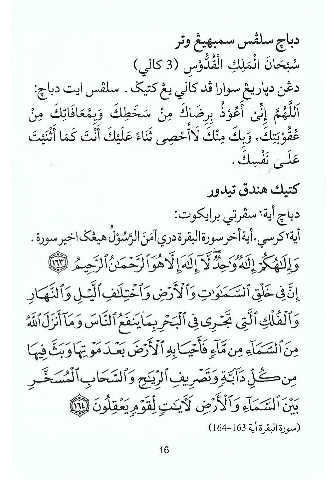 دباچ سلڤس سمبهيڠ وتر
سُبْحَانَ الْمَلِكِ الْقُدُّوْسِ (3 كالي)
دڠن دڽاريڠ سوارا ڤد كالي يڠ كتيݢ. سلڤس ايت دباچ:
اَللّٰهُمَّ إِنِّيْ أَعُوْذُ بِرِضَاكَ مِنْ سَخَطِكَ وَبِمُعَافَاتِكَ مِنْ
عُقُوْبَتِكَ. وَبِكَ مِنْكَ لَاأُحْصِى ثَنَاءً عَلَيْكَ أَنْتَ كَمَا أَثْنَيْتَ
عَلَى نَفْسِكَ.
كتيك هندق تيدور
دباچ أية٢ سڤرتي برايكوت:
أية كرسي، أية أخر سورة البقرة دري اٰمَنَ الرَّسُوْلُ هيڠݢ اخير سورة.
وَإِلَٰهُكُمْ إِلَٰهٌ وَٰحِدٌ لَّآ إِلَٰهَ إِلَّا هُوَ الرَّحْمَٰنُ الرَّحِيمُ ﴿١٦٣﴾
إِنَّ فِي خَلْقِ السَّمَٰوَٰتِ وَالْأَرْضِ وَاخْتِلَٰفِ الَّيْلِ وَالنَّهَارِ
وَالْفُلْكِ الَّتِي تَجْرِي فِي الْبَحْرِ بِمَا يَنفَعُ النَّاسَ وَمَآ أَنزَلَ اللَّهُ
مِنَ السَّمَآءِ مِن مَّآءٍ فَأَحْيَا بِهِ الْأَرْضَ بَعْدَ مَوْتِهَا وَبَثَّ فِيهَا
مِن كُلِّ دَآبَّةٍ وَتَصْرِيفِ الرِّيَٰحِ وَالسَّحَابِ الْمُسَخَّرِ
بَيْنَ السَّمَآءِ وَالْأَرْضِ لَءَايَٰتٍ لِّقَوْمٍ يَعْقِلُونَ ﴿١٦٤﴾
(سورة البقرة أية 163-164)
16